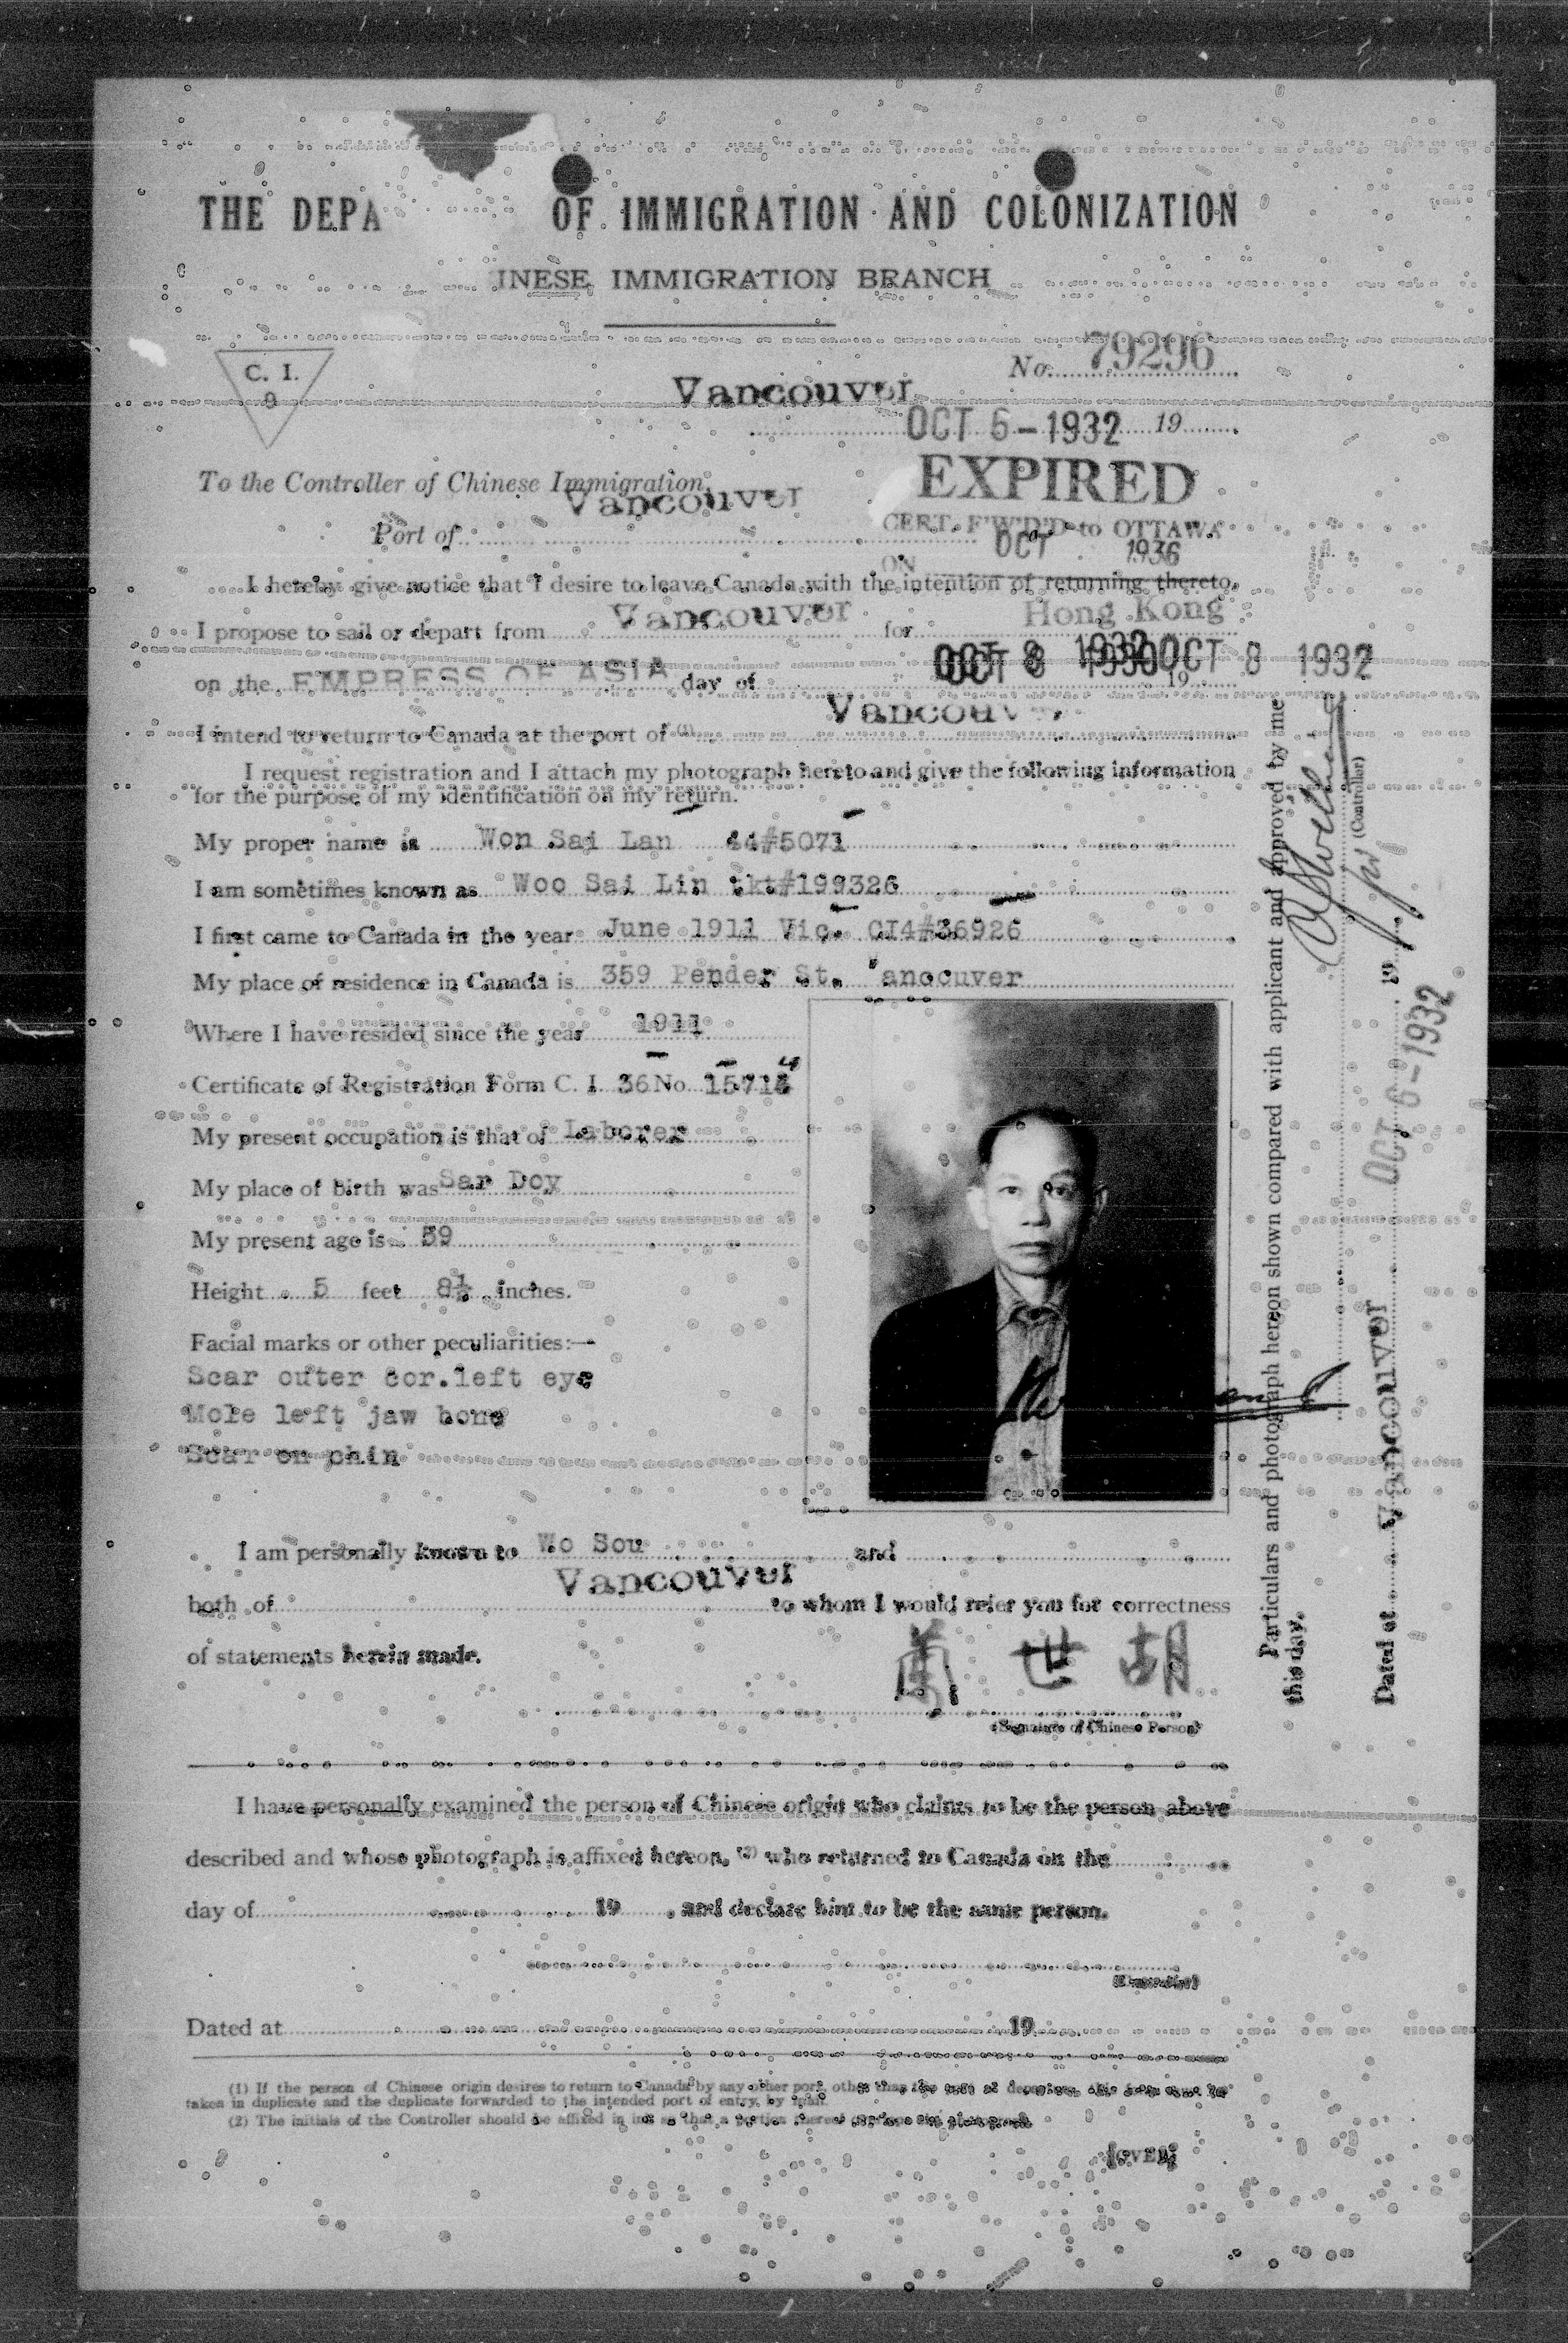 THE DEPA OF IMMIGRATION AND COLONIZATION
INESE IMMIGRATION BRANCH
C. I.
9
No. 79296
Vancouver
OCT 6-1932 19
To the Controller of Chinese Immigration,
EXPIRED
Vancouver
Port of
CERT. F'W'D'D to OTTAWA
ON OCT 1936
I hereby give notice that I desire to leave Canada with the intention of returning thereto.
I propose to sail or depart from Vancouver for Hong Kong
on the EMPRESS OF ASIA day of OCT 8 1932 OCT 8 1932 19
I intend to return to Canada at the port of (1) Vancouver
I request registration and I attach my photograph hereto and give the following information
for the purpose of my identification on my return.
My proper name is Won Sai Lan 44#5071
I am sometimes known as Woo Sai Lin tkt#199326
I first came to Canada in the year June 1911 Vic. CI4#36926
My place of residence in Canada is 359 Pender St. Vancouver
Where I have resided since the year 1911
Certificate of Registration Form C. I. 36 No. 15714
My present occupation is that of Laborer
My place of birth was Sar Doy
My present age is 59
Height 5 feet 8½ inches.
Facial marks or other peculiarities:—
Scar outer cor.left eye
Mole left jaw bone
Scar on chin
I am personally known to Wo Sou and
both of Vancouver to whom I would refer you for correctness
of statements herein made.
蘭 世 胡
(Signature of Chinese Person)
I have personally examined the person of Chinese origin who claims to be the person above
described and whose photograph is affixed hereon, (2) who returned to Canada on the
day of 19 , and declare him to be the same person.
(Controller)
Dated at 19
(1) If the person of Chinese origin desires to return to Canada by any other port other than the port of departure, this form must be
taken in duplicate and the duplicate forwarded to the intended port of entry, by mail.
(2) The initials of the Controller should be affixed in ink so that a portion thereof
[OVER]
Particulars and photograph hereon shown compared with applicant and approved by me
this day.
(Controller)
Dated at Vancouver OCT 6-1932 19